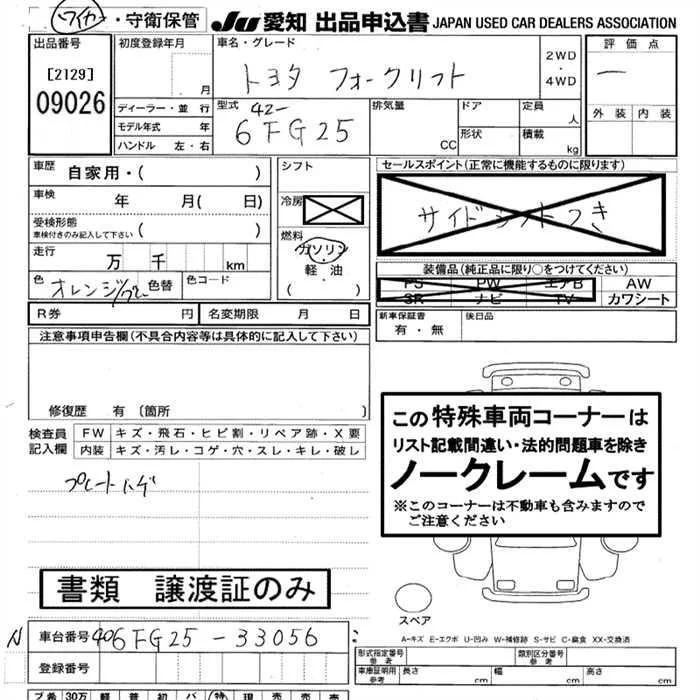 ワイカー・守衛保管 JU 愛知 出品申込書 JAPAN USED CAR DEALERS ASSOCIATION
出品番号
[2129]
09026
初度登録年月
月
ディーラー・並 行
モデル年式 年
ハンドル 左・右
車名・グレード
トヨタ フォークリフト
2WD
・
4WD
型式 42-
6FG25
排気量
CC
ドア
形状
定員
人
積載
kg
評価点
一
外装 内装
車歴 自家用・( )
車検 年 月( 日)
受検形態
車検付きのみ記入して下さい ( )
走行
万 千 km
色 オレンジ/グレー 色替 色コード
シフト
冷房
燃料
ガソリン
・
軽油
( )
セールスポイント(正常に機能するものに限ります)
サイドシフトつき
装備品(純正品に限り○をつけてください)
PS PW エアB AW
SR ナビ TV カワシート
新車保証書
有・無
後日品
R券 円 名変期限 月 日
注意事項申告欄(不具合内容等は具体的に記入して下さい)
修復歴 有〔箇所 〕
検査員
記入欄
FW キズ・飛石・ヒビ割・リペア跡・X要
内装 キズ・汚レ・コゲ・穴・スレ・キレ・破レ
プレートハゲ
この特殊車両コーナーは
リスト記載間違い・法的問題車を除き
ノークレームです
※このコーナーは不動車も含みますので
ご注意ください
書類 譲渡証のみ
スペア
A-キズ E-エクボ U-凹み W-補修跡 S-サビ C-腐食 XX-交換済
N 車台番号 406FG25-33056
登録番号
形式指定番号
参考
類別区分番号
参考
車庫証明用
参考
長さ cm 幅 cm 高さ cm